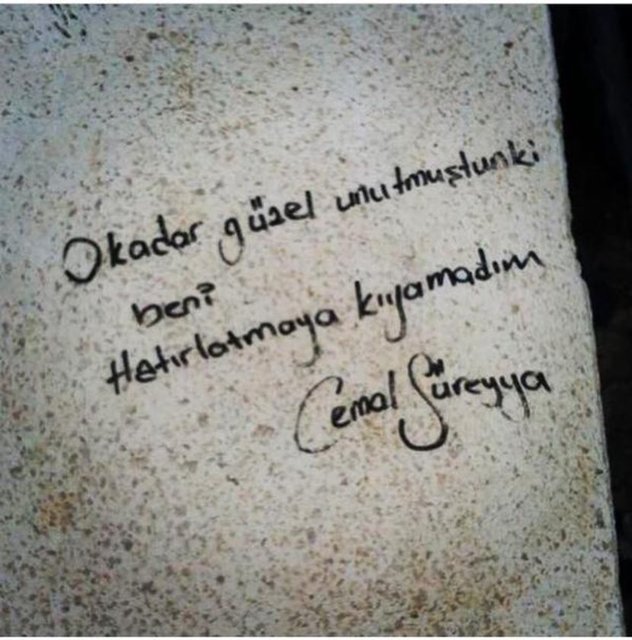 Okadar güzel unutmuştunki
beni
Hatırlatmaya kıyamadım
Cemal Süreyya